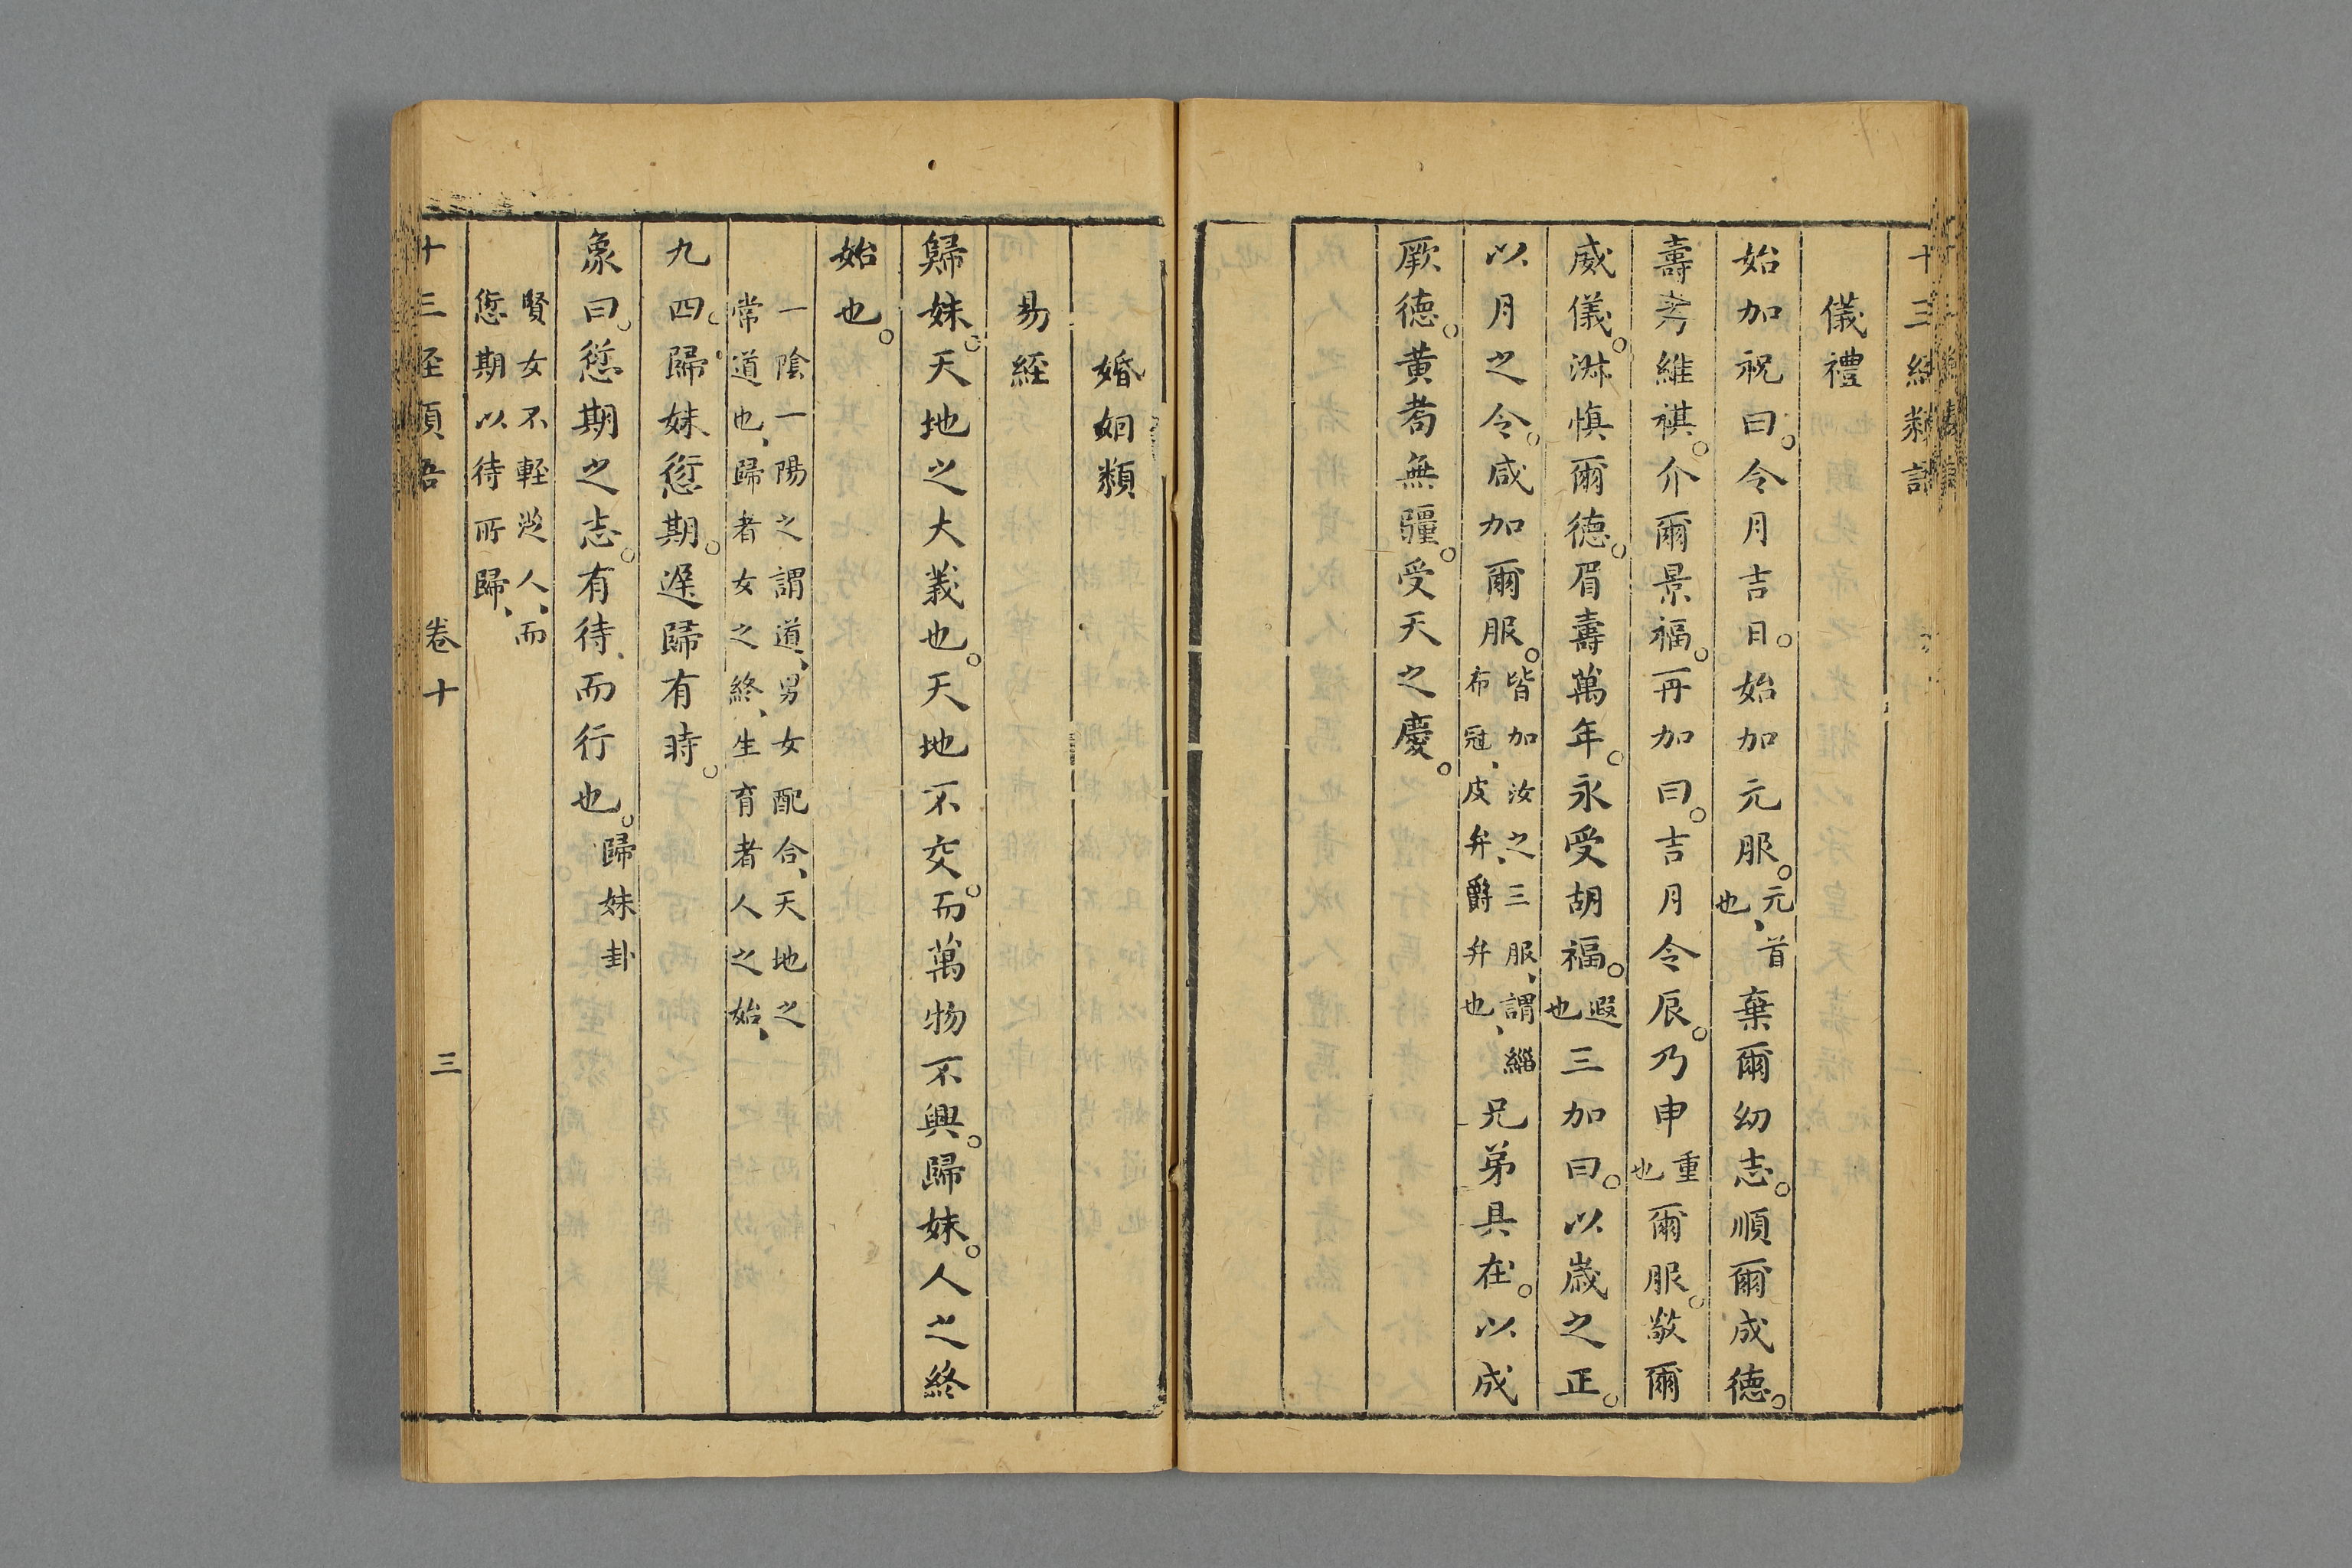 十三經類語
儀禮
始加祝曰。令月吉日。始加元服。元首也、棄爾幼志。順爾成德。
壽考維祺。介爾景福。再加曰。吉月令辰。乃申重也爾服。敬爾
威儀。淋慎爾德。眉壽萬年。永受胡福。遐也三加曰。以歲之正。
以月之令。咸加爾服。皆加汝之三服、謂緇布冠、皮弁、爵弁也、兄弟具在。以成
厥德。黃耇無疆。受天之慶。
婚姻類
易經
歸妹。天地之大義也。天地不交。而萬物不興。歸妹。人之終
始也。
一陰一陽之謂道、男女配合、天地之
常道也、歸者女之終、生育者人之始、
九四。歸妹愆期。遲歸有時。
象曰。愆期之志。有待而行也。歸妹卦
賢女不輕從人、而
愆期以待所歸、
十三經類語 卷十 三